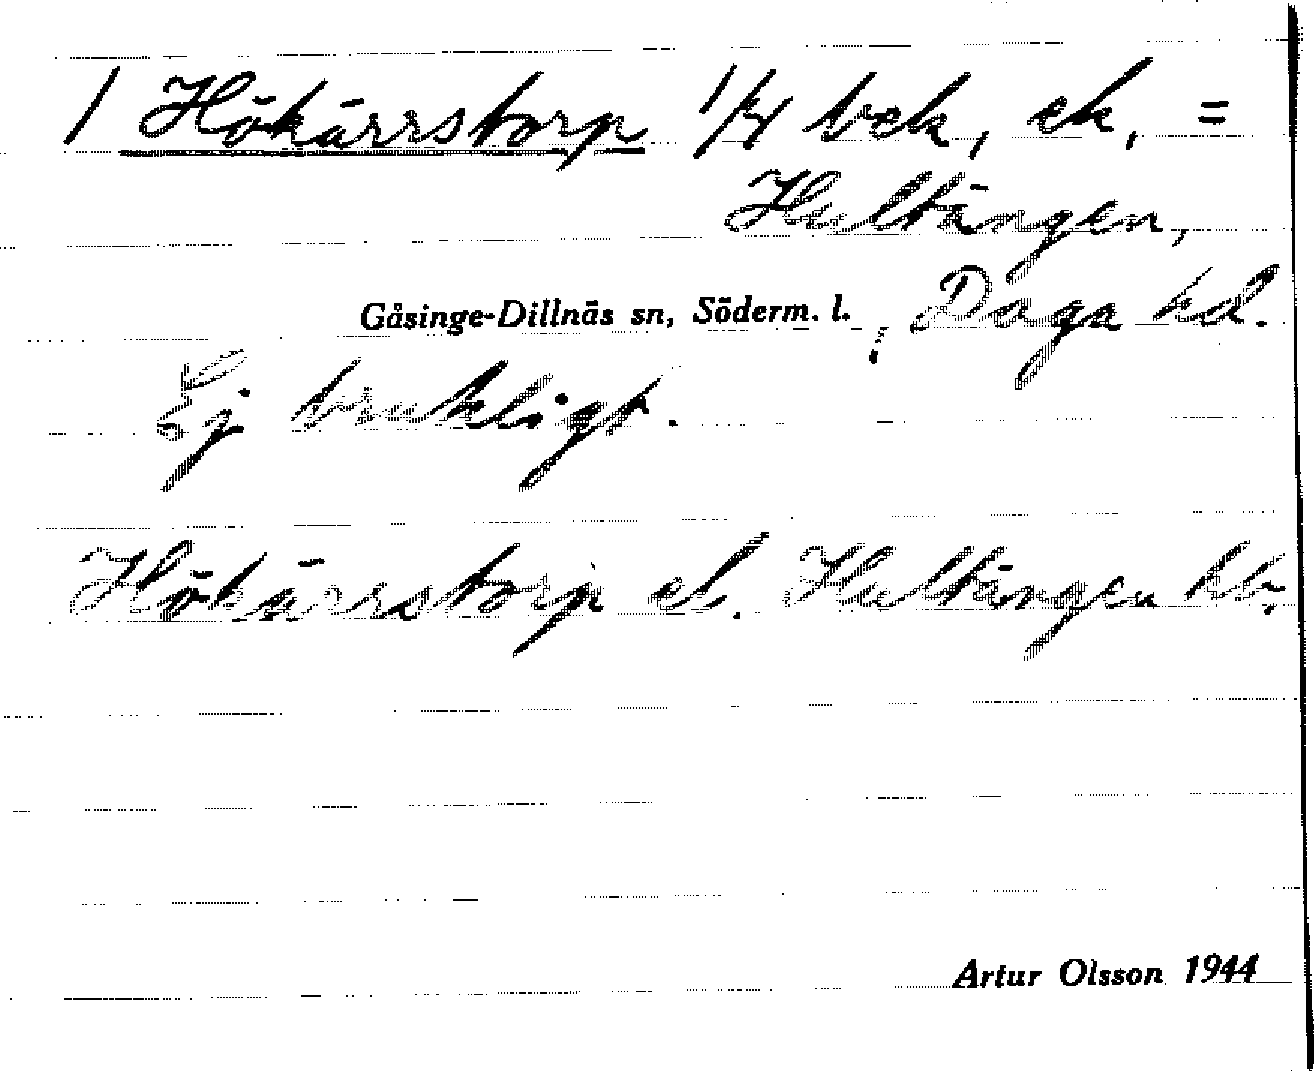 / Hökärrstorp 1/4 bek, ek, =
Hultängen,
Gåsinge-Dillnäs sn, Söderm. l., Daga hd.
Ej brukligt.
Hökärrstorp el. Hultängen hb.
Artur Olsson 1944